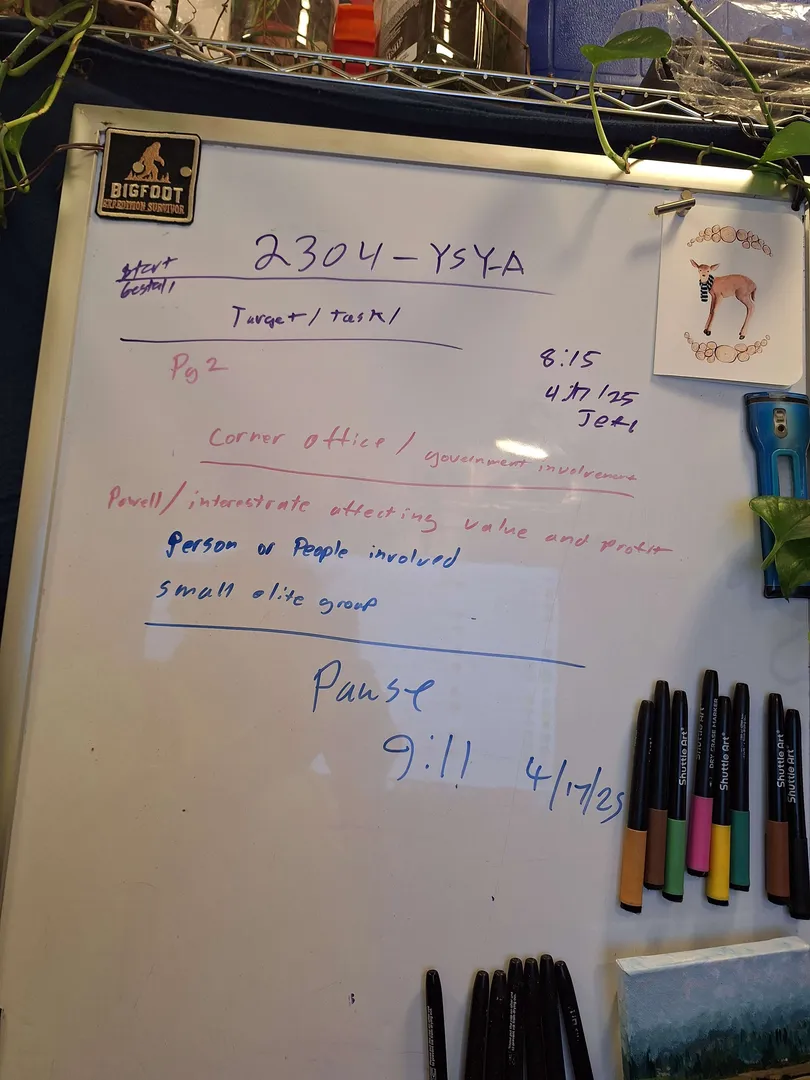 BIGFOOT
EXPEDITION SURVIVOR
2304-YSY-A
start
Target/task/
Pg 2
8:15
4/17/25
Corner office / government involvement
Powell/interestrate affecting value and profit
Person or People involved
small elite group
Pause
9:11 4/17/25
Shuttle Art
Shuttle Art
Shuttle Art
DRY ERASE MARKER
Shuttle Art
Shuttle Art
Shuttle Art